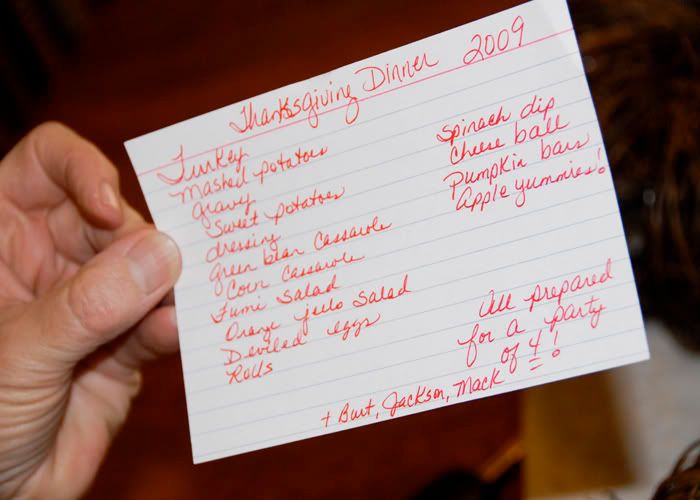 Thanksgiving Dinner 2009
Turkey
Mashed potatoes
gravy
Sweet potatoes
dressing
green bean Casserole
Corn Casserole
Fumi Salad
Orange jello Salad
Deviled eggs
Rolls
Spinach dip
Cheese ball
Pumpkin bars
Apple yummies!
All prepared
for a party
of 4!
+ Burt, Jackson, Mack